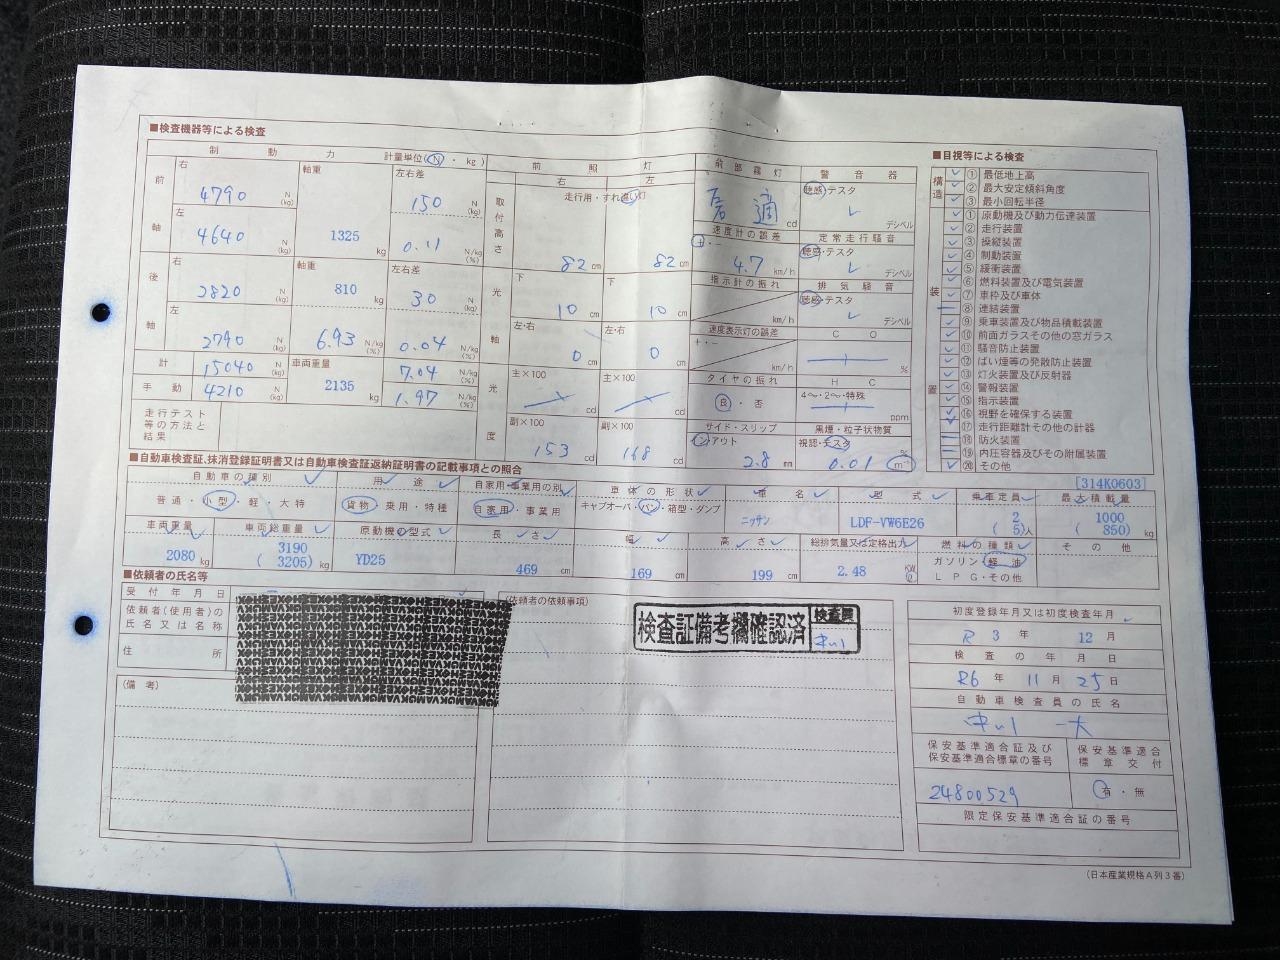 ■検査機器等による検査
制動力 計量単位(N・kg)
前軸
右 4790 N(kg)
左 4640 N(kg)
軸重 1325 kg
左右差 150 N(kg)
0.11 N/kg(%)
後軸
右 2820 N(kg)
左 2790 N(kg)
軸重 810 kg
6.93 N/kg(%)
左右差 30 N(kg)
0.04 N/kg(%)
計 15040 N(kg)
手動 4210 N(kg)
車両重量 2135 kg
7.04 N/kg(%)
1.97 N/kg(%)
走行テスト等の方法と結果
前照灯
右 左
走行用・すれ違い灯
取付高さ 82 cm 82 cm
光軸
下 10 cm 下 10 cm
左・右 0 cm 左・右 0 cm
光度
主×100 cd 主×100 cd
副×100 153 cd 副×100 168 cd
前部霧灯
適 cd
速度計の誤差
+・- 4.7 km/h
指示計の振れ
km/h
速度表示灯の誤差
+・- km/h
タイヤの振れ
良・否
サイド・スリップ
イン アウト 2.8 mm
警音器
聴感・テスタ
デシベル
定常走行騒音
聴感・テスタ
デシベル
排気騒音
聴感・テスタ
デシベル
CO
%
HC
4〜・2〜・特殊
ppm
黒煙・粒子状物質
視認・テスタ %
0.01 m⁻¹
■目視等による検査
構造
①最低地上高
②最大安定傾斜角度
③最小回転半径
装置
①原動機及び動力伝達装置
②走行装置
③操縦装置
④制動装置
⑤緩衝装置
⑥燃料装置及び電気装置
⑦車枠及び車体
⑧連結装置
⑨乗車装置及び物品積載装置
⑩前面ガラスその他の窓ガラス
⑪騒音防止装置
⑫ばい煙等の発散防止装置
⑬灯火装置及び反射器
⑭警報装置
⑮指示装置
⑯視野を確保する装置
⑰走行距離計その他の計器
⑱防火装置
⑲内圧容器及びその附属装置
⑳その他
[314K0603]
■自動車検査証、抹消登録証明書又は自動車検査証返納証明書の記載事項との照合
自動車の種別 用途 自家用・事業用の別 車体の形状 車名 型式 乗車定員 最大積載量
普通・小型・軽・大特 貨物・乗用・特種 自家用・事業用 キャブオーバ・バン・箱型・ダンプ ニッサン LDF-VW6E26 2(5)人 1000(850)kg
車両重量 車両総重量 原動機の型式 長さ 幅 高さ 総排気量又は定格出力 燃料の種類 その他
2080 kg 3190(3205)kg YD25 469 cm 169 cm 199 cm 2.48 KW ℓ ガソリン・軽油
LPG・その他
■依頼者の氏名等
受付年月日
依頼者(使用者)の氏名又は名称
住所
(備考)
(依頼者の依頼事項)
検査証備考欄確認済 検査員
初度登録年月又は初度検査年月
R 3 年 12 月
検査の年月日
R6 年 11 月 25 日
自動車検査員の氏名
保安基準適合証及び保安基準適合標章の番号
24800529
保安基準適合標章交付
有・無
限定保安基準適合証の番号
(日本産業規格A列3番)